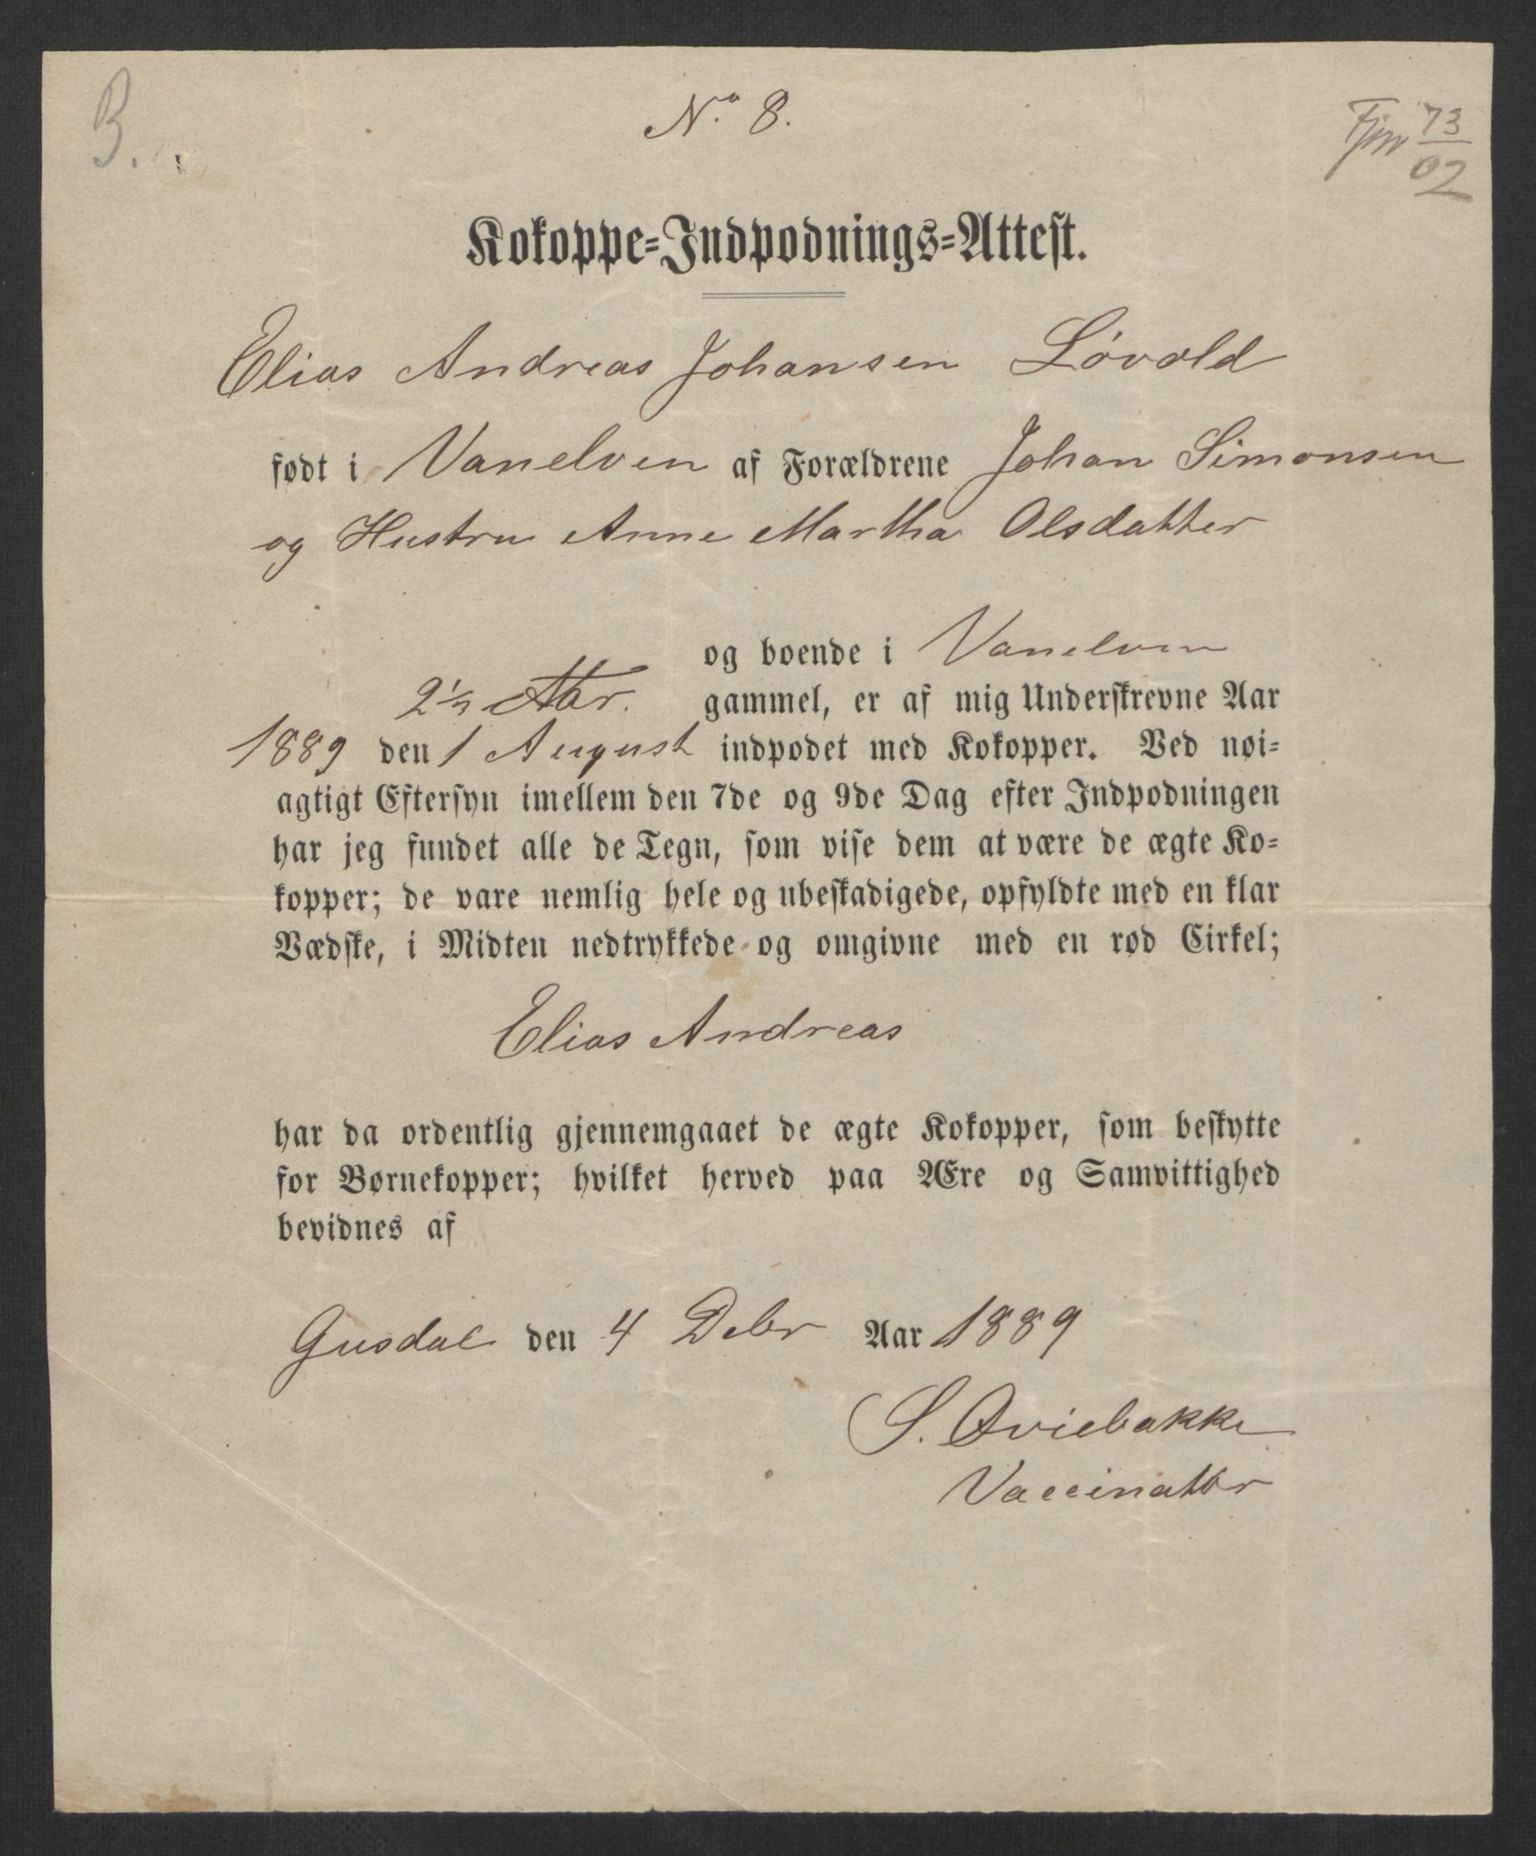 B.
Fjm 73/02
No. 8.
Kokoppe-Indpodnings-Attest.
Elias Andreas Johansen Løvold
født i Vanelven af Forældrene Johan Simonsen
og Hustru Anne Martha Olsdatter
og boende i Vanelven
2 1/2 Aar. gammel, er af mig Underskrevne Aar
1889 den 1 August indpodet med Kokopper. Ved nøi-
agtigt Eftersyn imellem den 7de og 9de Dag efter Indpodningen
har jeg fundet alle de Tegn, som vise dem at være de ægte Ko-
kopper; de vare nemlig hele og ubeskadigede, opfyldte med en klar
Vædske, i Midten nedtrykkede og omgivne med en rød Cirkel;
Elias Andreas
har da ordentlig gjennemgaaet de ægte Kokopper, som beskytte
for Børnekopper; hvilket herved paa Ære og Samvittighed
bevidnes af
Gusdal den 4 Debr Aar 1889
S. Øviebakke
Vaccinatør